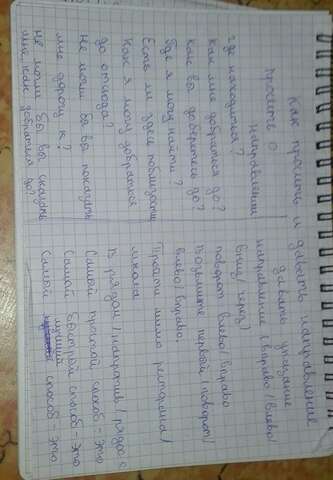 Как просить и давать направление
Просить о
направлении
где находиться?
Как мне добраться до?
Как вы доберетесь до?
Где я могу найти?
Есть ли здесь поблизости
Как я могу добраться
до отсюда?
Не могли бы вы показать
мне дорогу к?
Не могли бы вы сказать
мне, как добраться до?
давать указание
направление (вправо/влево/
вниз/
поворот влево/вправо
Возьмите первый (поворот)
влево/вправо,
Пройти мимо ресторана/
школы
В рядом/напротив/рядом с
Самый простой способ - это
Самый быстрой способ - это
лучший
Самый способ это